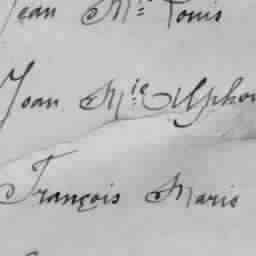 Jean Mie Louis
Jean Mie Alphon
François Marie